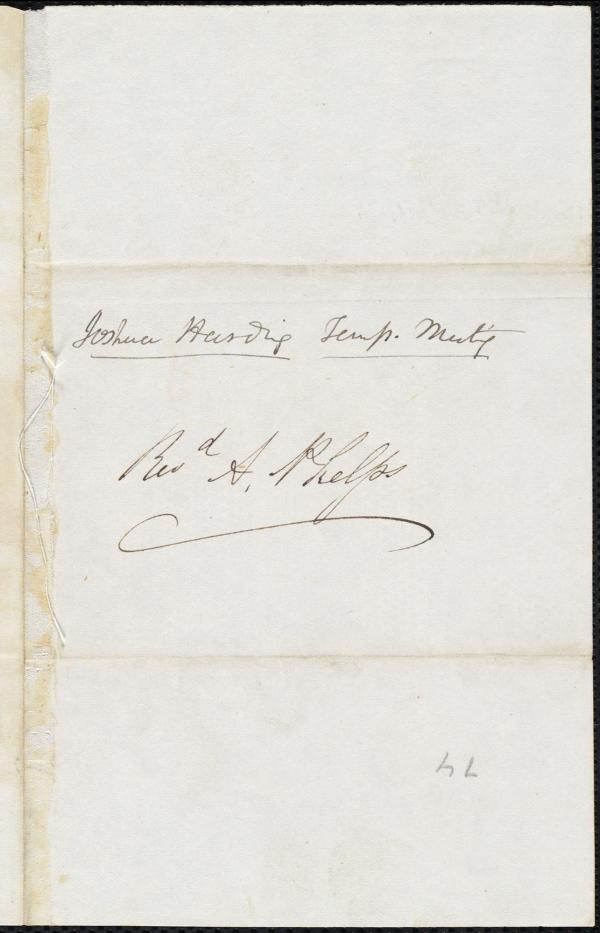 Joshua Harding Temp. Meet'g
Rev d A. Phelps